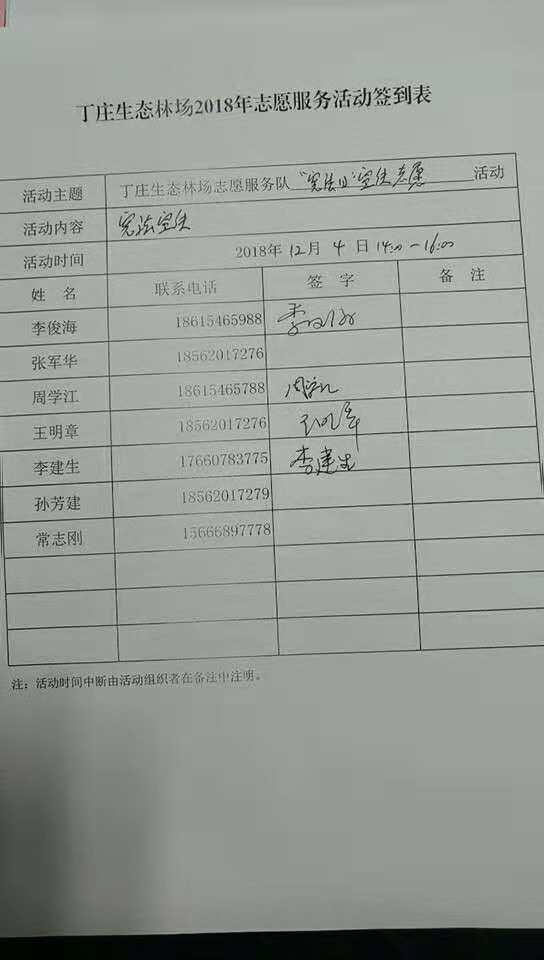 丁庄生态林场2018年志愿服务活动签到表
活动主题 丁庄生态林场志愿服务队 "宪法日"宣传志愿 活动
活动内容 宪法宣传
活动时间 2018年 12月 4 日 14:00-16:00
姓 名 联系电话 签 字 备 注
李俊海 18615465988
张军华 18562017276
周学江 18615465788 周学江
王明章 18562017276
李建生 17660783775 李建生
孙芳建 18562017279
常志刚 15666897778
注：活动时间中断由活动组织者在备注中注明。